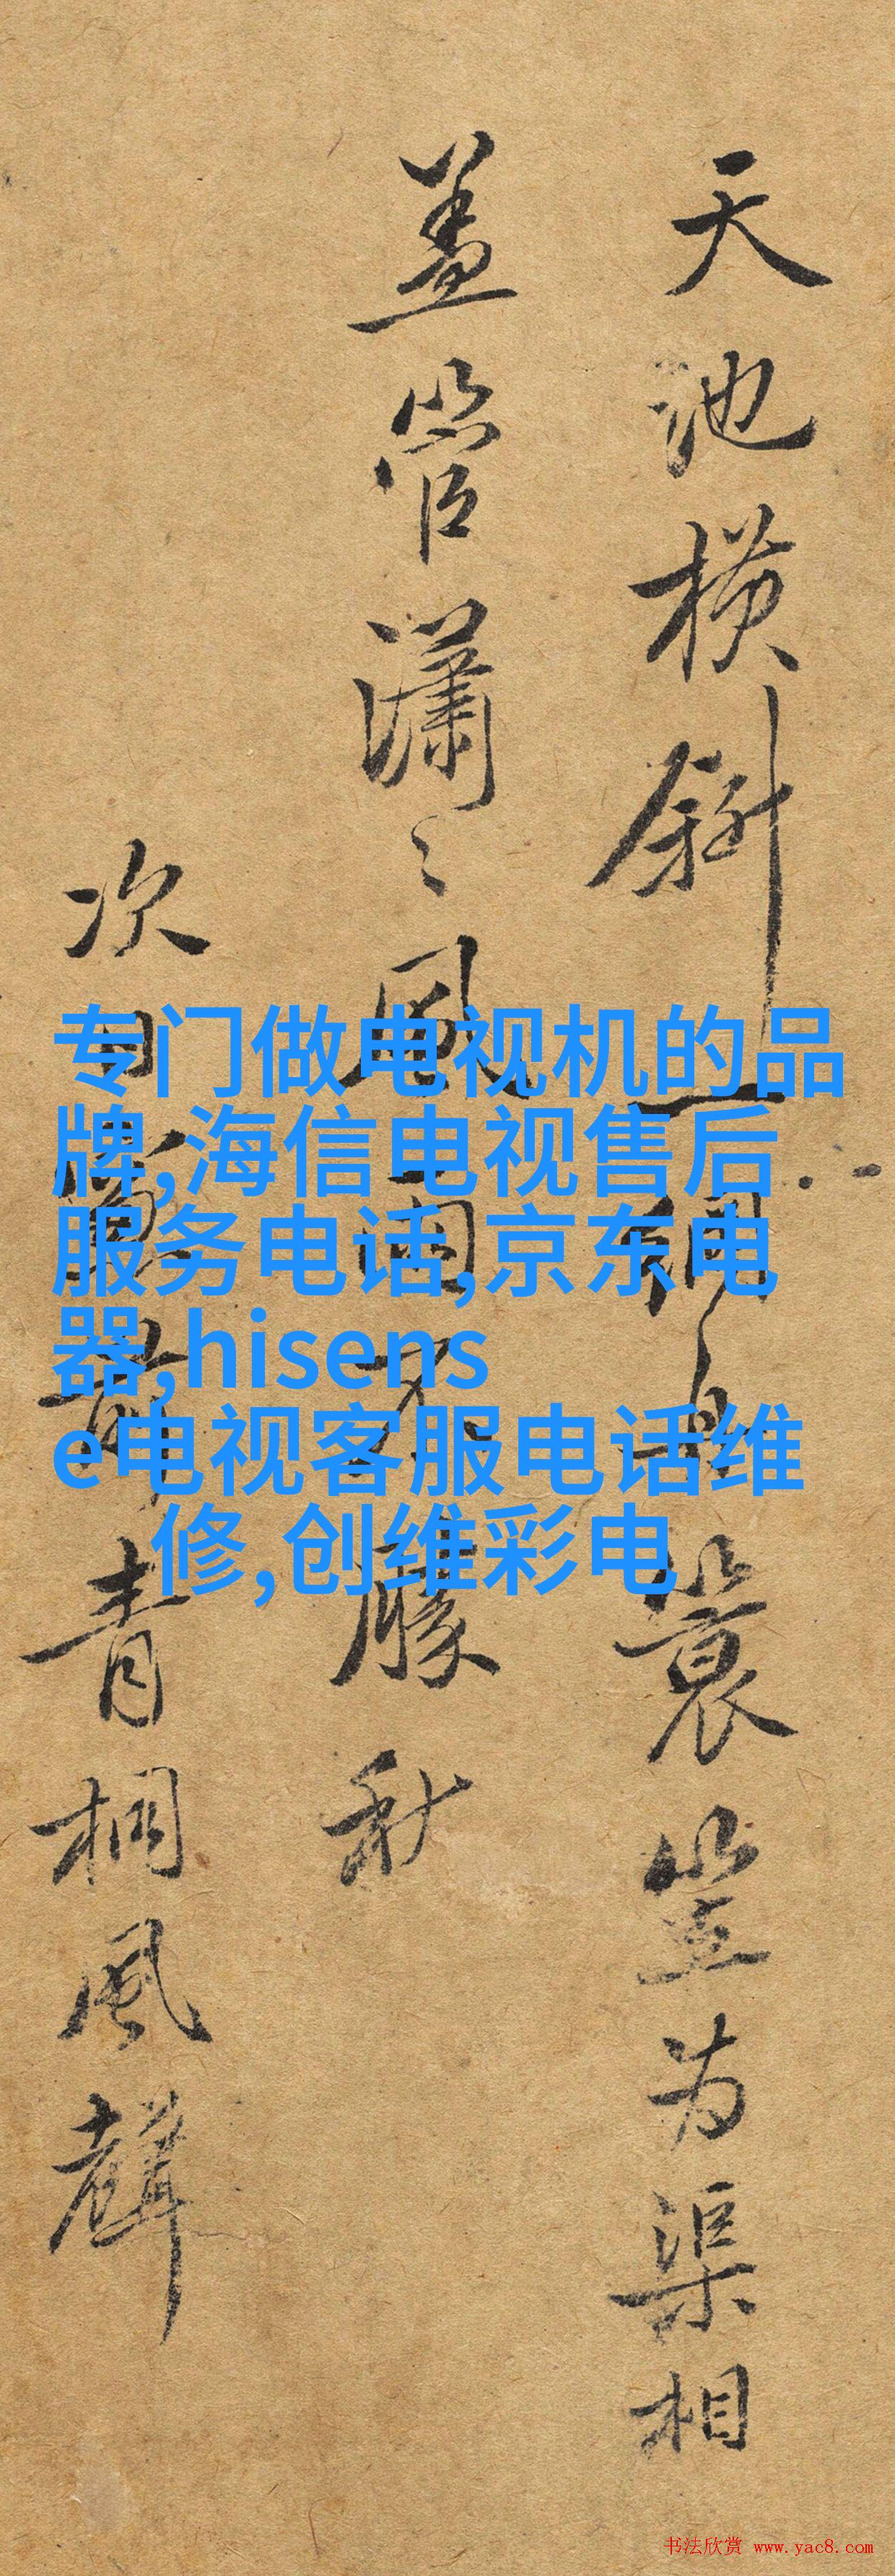 天池横斜一蓑笠为渠相
盖管瀟〻風雨不勝秋
次日青桐風聲
专门做电视机的品
牌,海信电视售后
服务电话,京东电
器,hisens
e电视客服电话维
修,创维彩电
书法欣赏 www.yac8.com